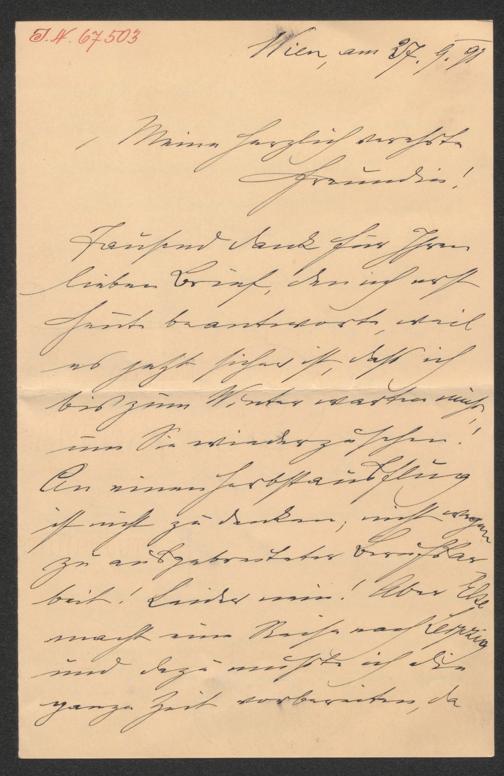 I.N. 67503
Wien, am 27. 9. 91
Meine herzlich verehrte
Freundin!
Tausend Dank für Ihren
lieben Brief, den ich erst
heute beantworte, weil
es jetzt sicher ist, daß ich
bis zum Winter warten muß,
um Sie wiederzusehen!
An einen Herbstausflug
ist nicht zu denken, nicht wegen
zu ausgebreiteter Berufsar-
beit! Leider nein! Aber Else
macht eine Reise nach Leipzig
und dazu mußte ich die
ganze Zeit vorbereiten, da